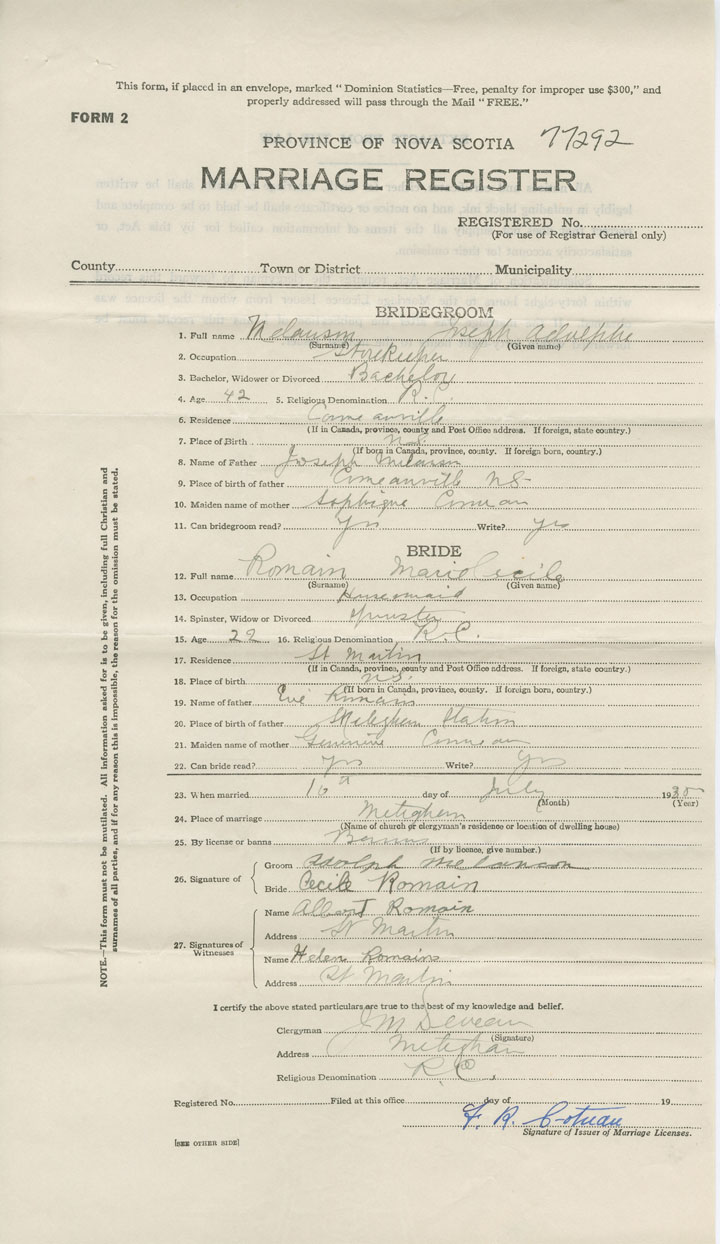 This form, if placed in an envelope, marked "Dominion Statistics—Free, penalty for improper use $300," and
properly addressed will pass through the Mail "FREE."
FORM 2
PROVINCE OF NOVA SCOTIA 77292
MARRIAGE REGISTER
REGISTERED No.
(For use of Registrar General only)
County Town or District Municipality
BRIDEGROOM
1. Full name Melanson Joseph Adolphe
(Surname) (Given name)
2. Occupation Storekeeper
3. Bachelor, Widower or Divorced Bachelor
4. Age 42 5. Religious Denomination R.C.
6. Residence Comeauville
(If in Canada, province, county and Post Office address. If foreign, state country.)
7. Place of Birth N.S.
(If born in Canada, province, county. If foreign born, country.)
8. Name of Father Joseph Melanson
9. Place of birth of father Comeauville N.S.
10. Maiden name of mother Comeau
11. Can bridegroom read? Yes Write? Yes
BRIDE
12. Full name Romain Marie Cécile
(Surname) (Given name)
13. Occupation Housemaid
14. Spinster, Widow or Divorced Spinster
15. Age 22 16. Religious Denomination R.C.
17. Residence St Martin
(If in Canada, province, county and Post Office address. If foreign, state country.)
18. Place of birth N.S.
(If born in Canada, province, county. If foreign born, country.)
19. Name of father Romain
20. Place of birth of father Meteghan Station
21. Maiden name of mother Comeau
22. Can bride read? Yes Write? Yes
23. When married day of July 1930
(Month) (Year)
24. Place of marriage Meteghan
(Name of church or clergyman's residence or location of dwelling house)
25. By license or banns Banns
(If by licence, give number.)
26. Signature of
Groom Adolph Melanson
Bride Cecile Romain
27. Signatures of
Witnesses
Name Albert Romain
Address St Martin
Name Helen Romain
Address St Martin
I certify the above stated particulars are true to the best of my knowledge and belief.
Clergyman J M Deveau
(Signature)
Address Meteghan
Religious Denomination R.C.
Registered No. Filed at this office day of 19
Signature of Issuer of Marriage Licenses.
[SEE OTHER SIDE]
NOTE.—This form must not be mutilated. All information asked for is to be given, including full Christian and
surnames of all parties, and if for any reason this is impossible, the reason for the omission must be stated.